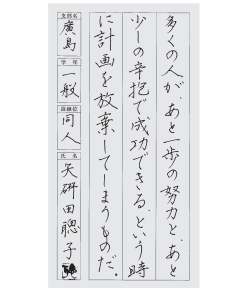 多くの人が、あと一歩の努力と、あと
少しの辛抱で成功できる、という時
に計画を放棄してしまうものだ。
支部名
廣島
学年
一般
段級位
同人
氏名
矢研田聰子